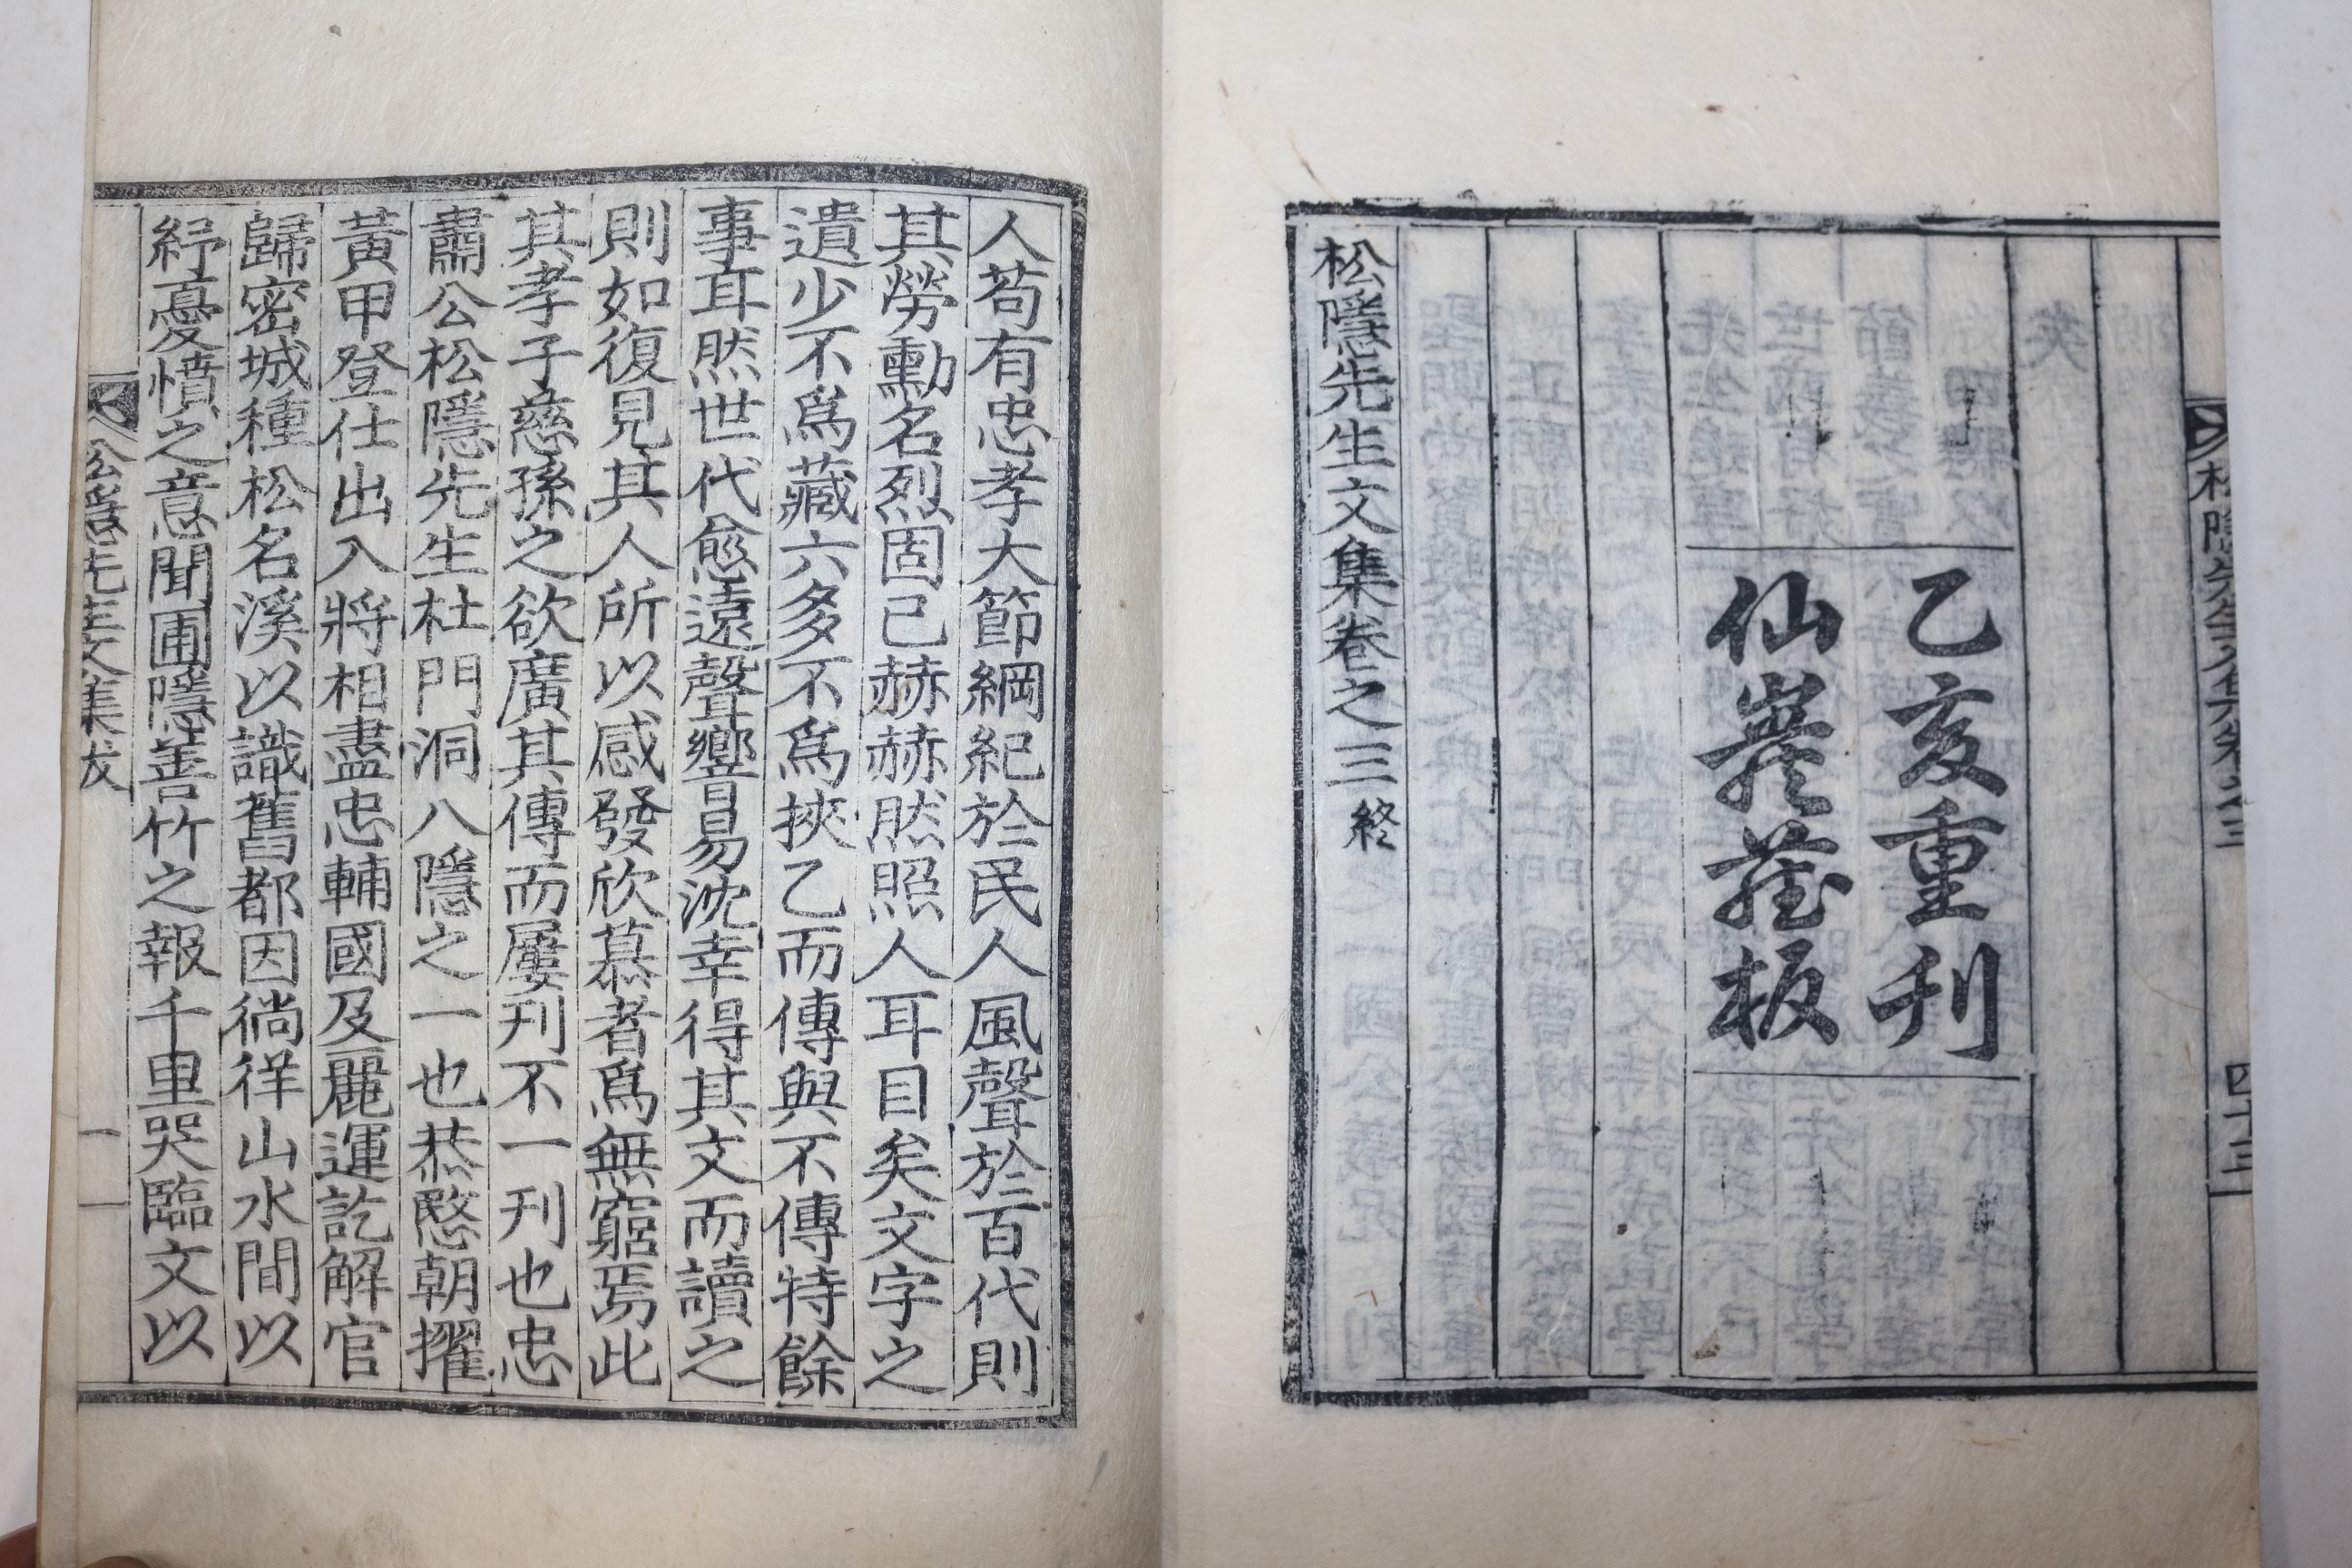 松隱先生文集卷之三
四十三
乙亥重刊
仙巖藏板
松隱先生文集卷之三終
人苟有忠孝大節綱紀於民人風聲於百代則
其勞勳名烈固已赫赫然照人耳目矣文字之
遺少不爲藏六多不爲挾乙而傳與不傳特餘
事耳然世代愈遠聲響易沈幸得其文而讀之
則如復見其人所以感發欣慕者爲無窮焉此
其孝子慈孫之欲廣其傳而屢刊不一刊也忠
肅公松隱先生杜門洞八隱之一也恭愍朝擢
黃甲登仕出入將相盡忠輔國及麗運訖解官
歸密城種松名溪以識舊都因徜徉山水間以
紓憂憤之意聞圃隱善竹之報千里哭臨文以
松隱先生文集跋
一